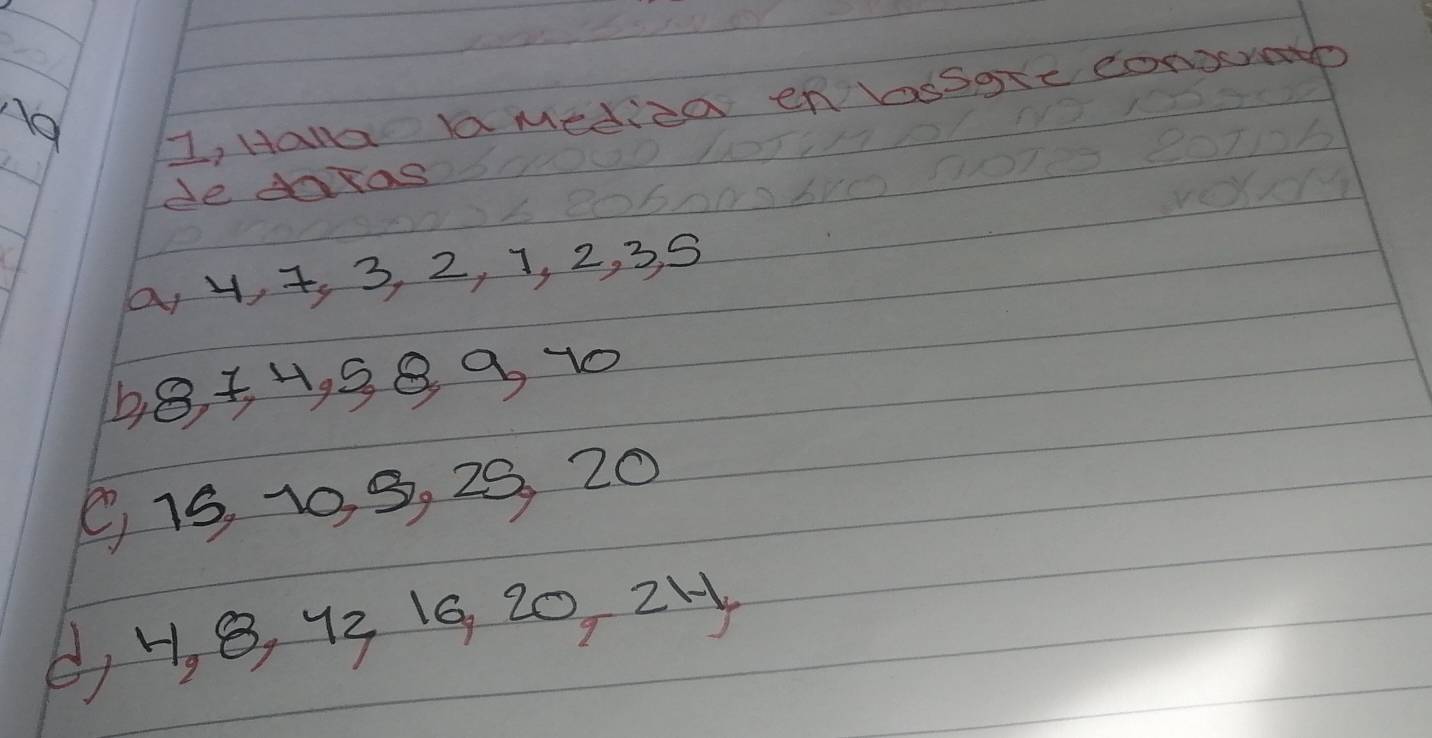 1, Halla la Medida en las sgte conjunto
de datas
a, 4, 7, 3, 2, 1, 2, 3, 5
b, 8, 7, 4, 5, 8, 9, 10
c, 15, 10, 5, 25, 20
d, 4, 8, 12, 16, 20, 24,